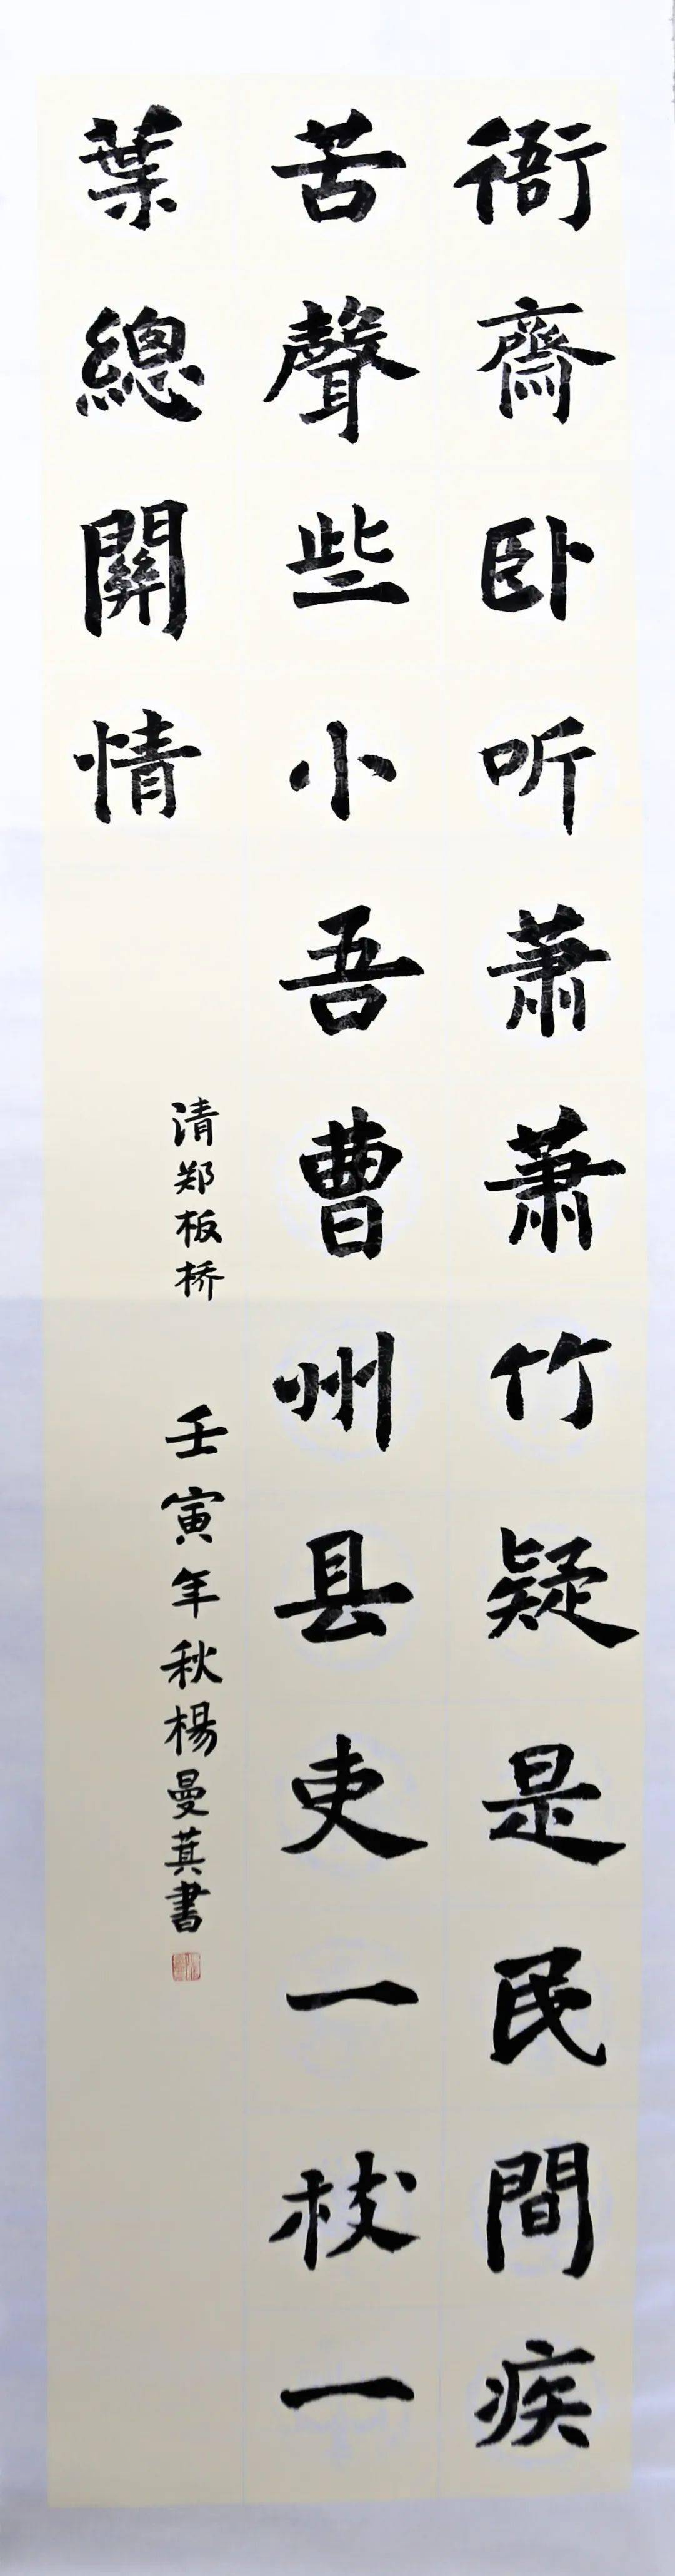 衙齋卧听蕭蕭竹疑是民間疾
苦聲些小吾曹州县吏一枝一
葉總關情
清郑板桥
壬寅年秋楊曼萁書